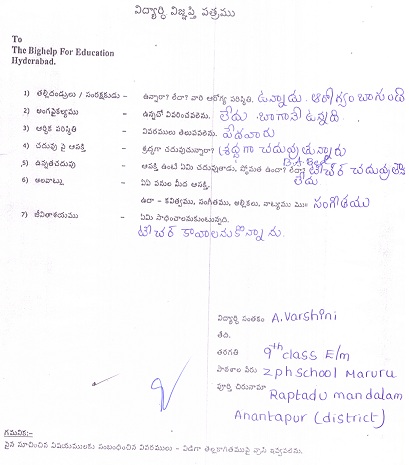 విద్యార్ధి విజ్ఞప్తి పత్రము
To
The Bighelp For Education
Hyderabad.
1) తల్లిదండ్రులు / సంరక్షకుడు - ఉన్నారా? లేదా? వారి ఆరోగ్య పరిస్థితి. ఉన్నాడు. ఆరోగ్యం బాగుంది
2) అంగవైకల్యము - ఉన్నచో వివరించవలెను. లేదు బాగానే ఉన్నది
3) ఆర్థిక పరిస్థితి - వివరములు తెలుపవలెను. పేదవారు
4) చదువు పై ఆసక్తి - శ్రద్ధగా చదువుతున్నారా? శ్రద్ధగా చదువుతున్నారు
5) ఉన్నతచదువు - ఆసక్తి ఉంటే ఏమి చదువుతారు, స్తోమత ఉందా? లేదా? టీచర్ చదువు
లేదు
6) అలవాట్లు - ఏఏ పనుల మీద ఆసక్తి.
ఉదా - కవిత్వము, సంగీతము, అల్లికలు, నాట్యము ము॥ సంగీతము
7) జీవితాశయము - ఏమి సాధించాలనుకుంటున్నది.
టీచర్ కావాలనుకొన్నాను.
విద్యార్థి సంతకం A.Varshini
తేది.
తరగతి 9th class E/m
పాఠశాల పేరు Zph School Maruru
పూర్తి చిరునామా Raptadu mandalam
Anantapur (district)
గమనిక:-
పైన సూచించిన విషయములకు సంబంధించిన వివరములు - విడిగా తెల్లకాగితముపై వ్రాసి ఇవ్వవలెను.